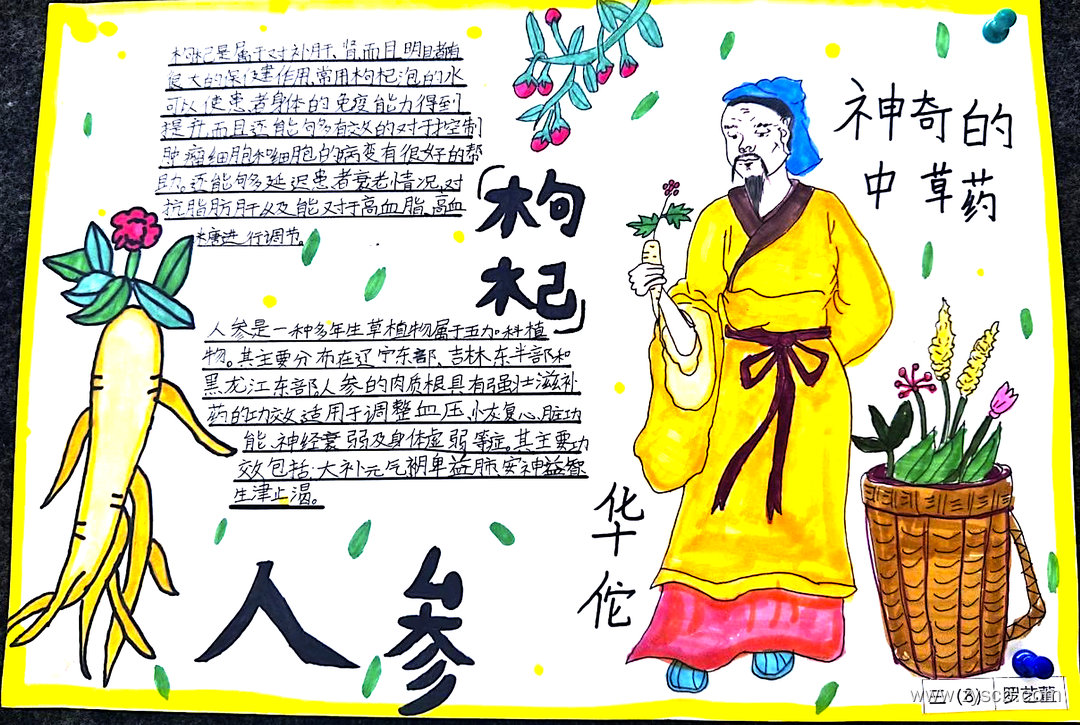 神奇的
中草药
枸杞是属于对补肝、肾,而且明目都有
很大的保健作用,常用枸杞泡的水
可以使患者身体的免疫能力得到
提升,而且还能够多有效的对于控制
肿瘤细胞和细胞的病变有很好的帮
助。还能够多延迟患者衰老情况,对
抗脂肪肝以及能对于高血脂、高血
糖进行调节。
「枸
杞」
人参是一种多年生草植物属于五加科植
物。其主要分布在辽宁东部、吉林东半部和
黑龙江东部,人参的肉质根具有强壮滋补
药的功效,适用于调整血压、恢复心脏功
能、神经衰弱及身体虚弱等症。其主要功
效包括:大补元气,补脾益肺,安神益智
生津止渴。
人参
华
佗
三(8) 罗艺萱